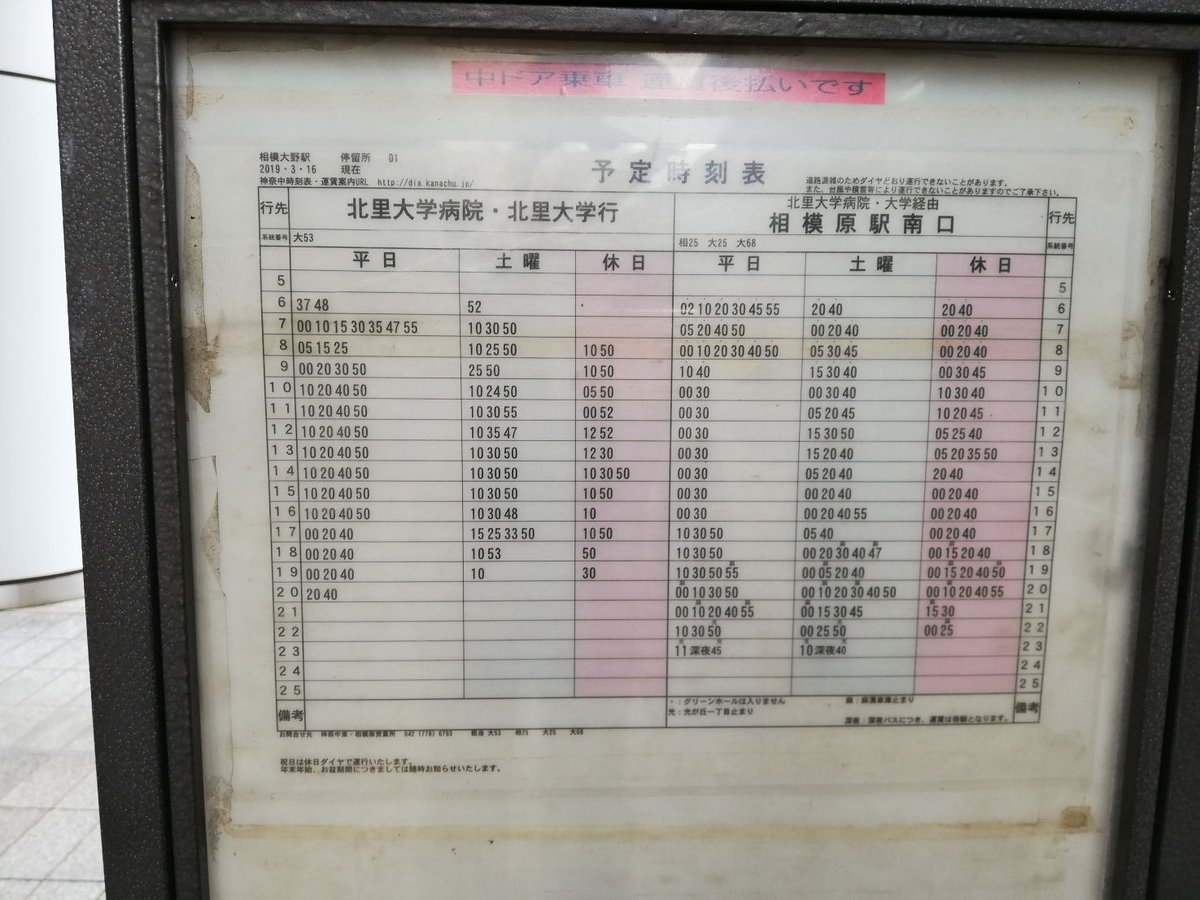 中ドア乗車 運賃後払いです
相模大野駅 停留所 01
2019・3・16 現在
神奈中時刻表・運賃案内URL http://dia.kanachu.jp/
予定時刻表
道路混雑のためダイヤどおり運行できないことがあります。
また、台風や積雪等により運行できないことがありますのでご了承下さい。
行先 北里大学病院・北里大学行 北里大学病院・大学経由 行先
相模原駅南口
系統番号 大53 相25 大25 大68 系統番号
平日 土曜 休日 平日 土曜 休日
5 5
6 37 48 52 02 10 20 30 45 55 20 40 20 40 6
7 00 10 15 30 35 47 55 10 30 50 05 20 40 50 00 20 40 00 20 40 7
8 05 15 25 10 25 50 10 50 00 10 20 30 40 50 05 30 45 00 20 40 8
9 00 20 30 50 25 50 10 50 10 40 15 30 40 00 30 45 9
10 10 20 40 50 10 24 50 05 50 00 30 00 30 40 10 30 40 10
11 10 20 40 50 10 30 55 00 52 00 30 05 20 45 10 20 45 11
12 10 20 40 50 10 35 47 12 52 00 30 15 30 50 05 25 40 12
13 10 20 40 50 10 30 50 12 30 00 30 15 20 40 05 20 35 50 13
14 10 20 40 50 10 30 50 10 30 50 00 30 05 20 40 20 40 14
15 10 20 40 50 10 30 50 10 50 00 30 00 20 40 00 20 40 15
16 10 20 40 50 10 30 48 10 00 30 00 20 40 55 00 20 40 16
17 00 20 40 15 25 33 50 10 50 10 30 50 05 40 00 20 40 17
18 00 20 40 10 53 50 10 30 50 00 20 30 40 47 00 15 20 40 18
19 00 20 40 10 30 10 30 50 55 00 05 20 40 00 15 20 40 50 19
20 20 40 00 10 30 50 00 10 20 30 40 50 00 10 20 40 55 20
21 00 10 20 40 55 00 15 30 45 15 30 21
22 10 30 50 00 25 50 00 25 22
23 11 深夜45 10 深夜40 23
24 24
25 25
備考 ・：グリーンホールは入りません 備考
光：光が丘一丁目止まり
深夜：深夜バスにつき、運賃は倍額となります。
お問合せ先 神奈中東・相模原営業所 042 (778) 6793 担当 大53 相25 大25 大68
祝日は休日ダイヤで運行いたします。
年末年始、お盆期間につきましては随時お知らせいたします。